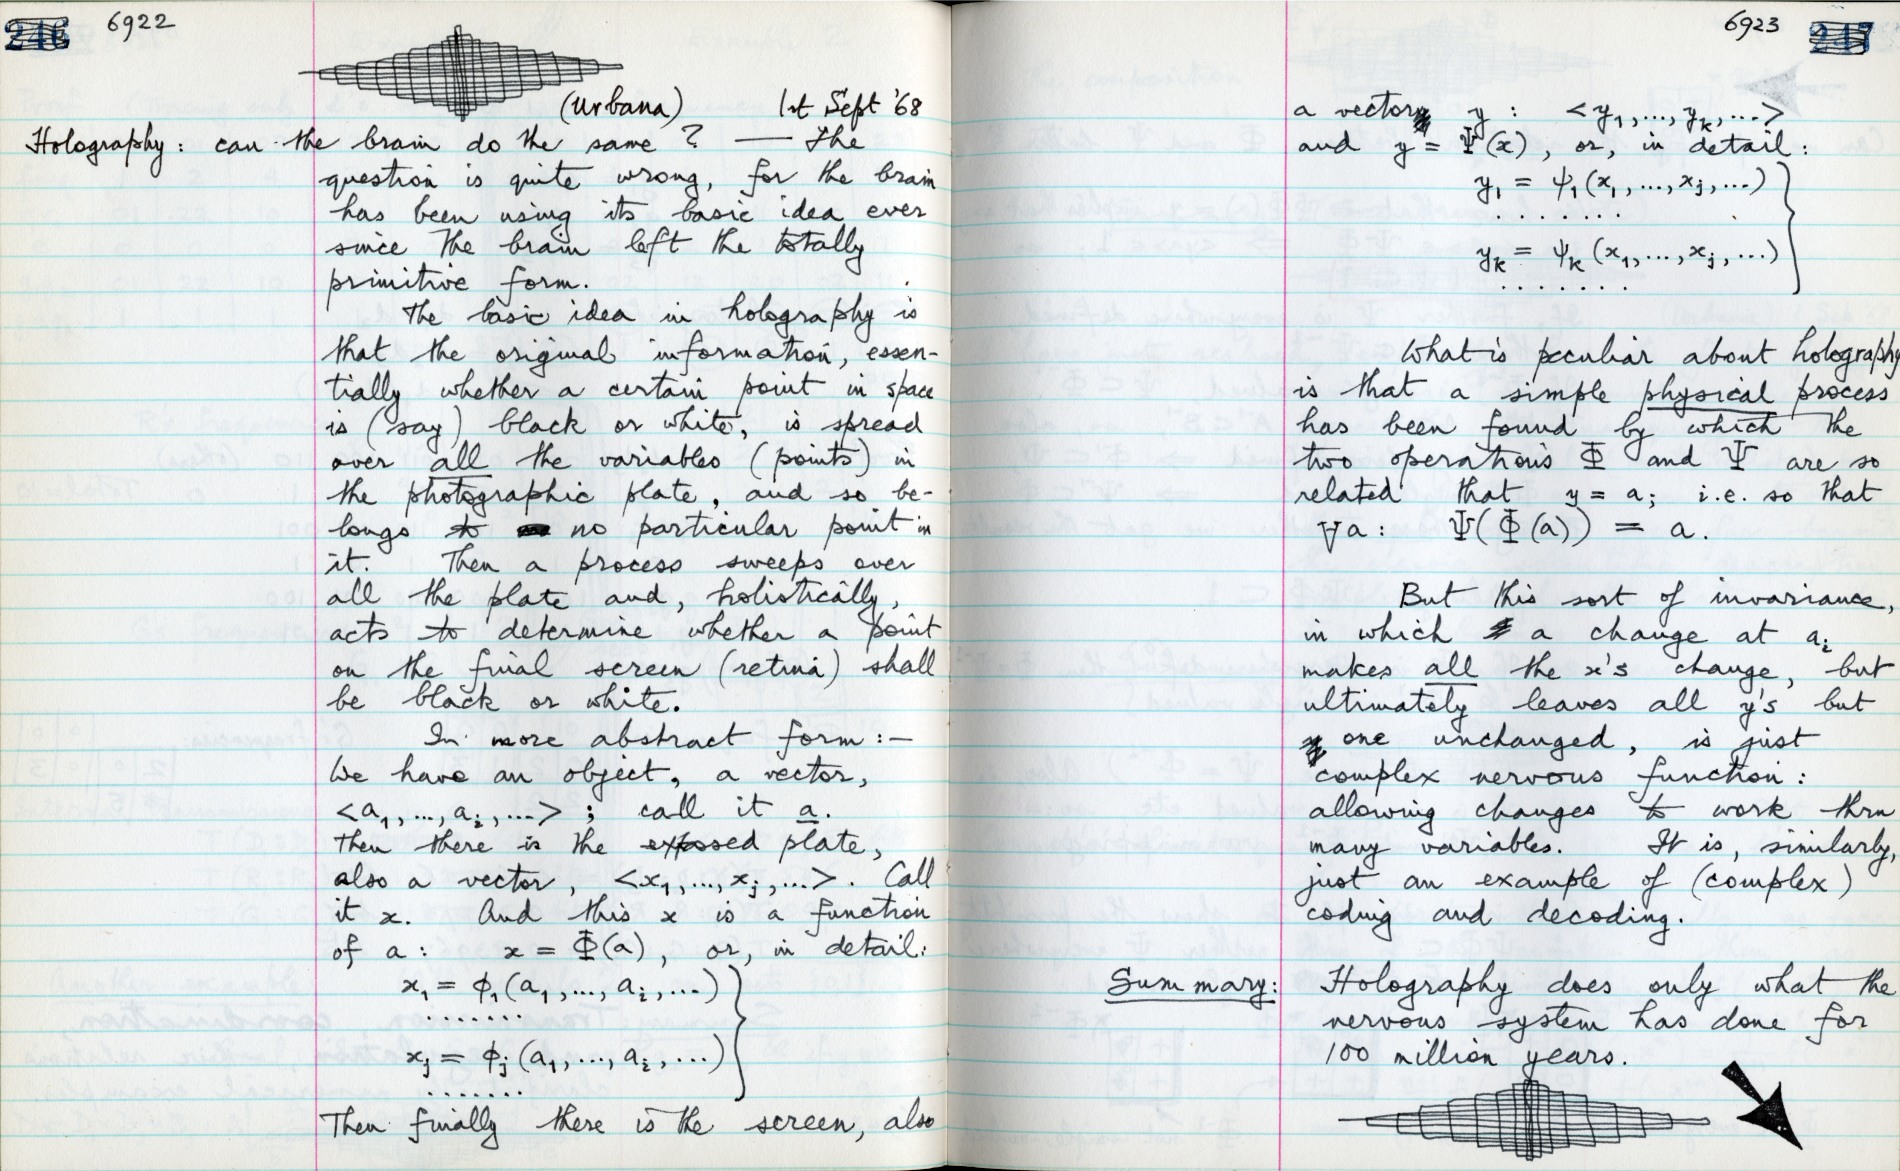 246 6922
(Urbana) 1st Sept '68
Holography: can the brain do the same? — The
question is quite wrong, for the brain
has been using its basic idea ever
since the brain left the totally
primitive form.
The basic idea in holography is
that the original information, essen-
tially whether a certain point in space
is (say) black or white, is spread
over all the variables (points) in
the photographic plate, and so be-
longs to no particular point in
it. Then a process sweeps over
all the plate and, holistically,
acts to determine whether a point
on the final screen (retina) shall
be black or white.
In more abstract form:—
We have an object, a vector,
<a₁, ..., aᵢ, ...> ; call it a.
Then there is the exposed plate,
also a vector, <x₁, ..., xⱼ, ...>. Call
it x. And this x is a function
of a: x = Φ(a), or, in detail:
x₁ = ϕ₁(a₁, ..., aᵢ, ...)
.......
xⱼ = ϕⱼ(a₁, ..., aᵢ, ...)
.......
Then finally there is the screen, also
6923 247
a vector y : <y₁, ..., yₖ, ...>
and y = Ψ(x), or, in detail:
y₁ = ψ₁(x₁, ..., xⱼ, ...)
.......
yₖ = ψₖ(x₁, ..., xⱼ, ...)
.......
What is peculiar about holography
is that a simple physical process
has been found by which the
two operations Φ and Ψ are so
related that y = a; i.e. so that
∀a: Ψ(Φ(a)) = a.
But this sort of invariance,
in which a change at aᵢ
makes all the x's change, but
ultimately leaves all y's but
one unchanged, is just
complex nervous function:
allowing changes to work thru
many variables. It is, similarly,
just an example of (complex)
coding and decoding.
Summary: Holography does only what the
nervous system has done for
100 million years.